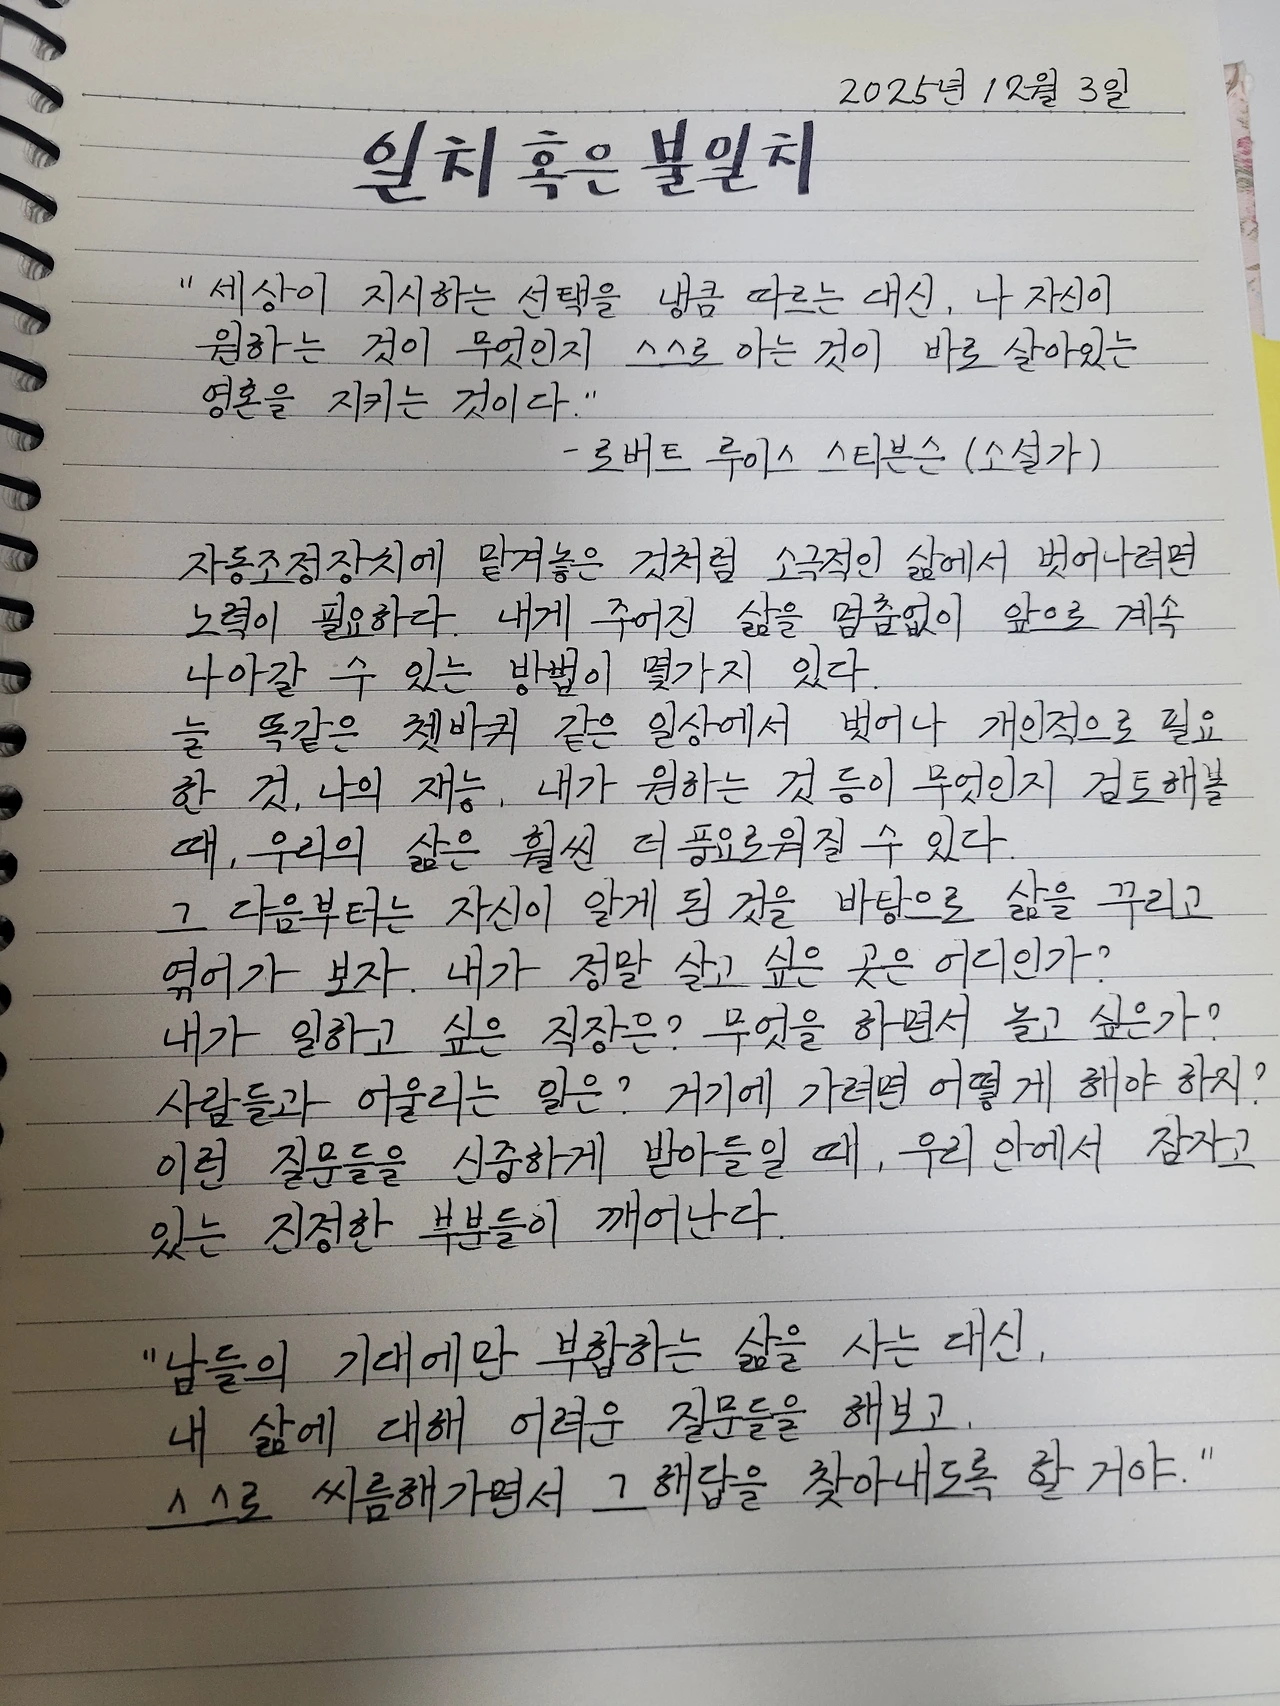 2025년 12월 3일
일치 혹은 불일치
"세상이 지시하는 선택을 냉큼 따르는 대신, 나 자신이
원하는 것이 무엇인지 스스로 아는 것이 바로 살아있는
영혼을 지키는 것이다."
- 로버트 루이스 스티븐슨 (소설가)
자동조정장치에 맡겨놓은 것처럼 소극적인 삶에서 벗어나려면
노력이 필요하다. 내게 주어진 삶을 멈춤없이 앞으로 계속
나아갈 수 있는 방법이 몇가지 있다.
늘 똑같은 쳇바퀴 같은 일상에서 벗어나 개인적으로 필요
한 것, 나의 재능, 내가 원하는 것 등이 무엇인지 검토해볼
때, 우리의 삶은 훨씬 더 풍요로워질 수 있다.
그 다음부터는 자신이 알게 된 것을 바탕으로 삶을 꾸리고
엮어가 보자. 내가 정말 살고 싶은 곳은 어디인가?
내가 일하고 싶은 직장은? 무엇을 하면서 놀고 싶은가?
사람들과 어울리는 일은? 거기에 가려면 어떻게 해야 하지?
이런 질문들을 신중하게 받아들일 때, 우리 안에서 잠자고
있는 진정한 부분들이 깨어난다.
"남들의 기대에만 부합하는 삶을 사는 대신,
내 삶에 대해 어려운 질문들을 해보고,
스스로 씨름해가면서 그 해답을 찾아내도록 할 거야."